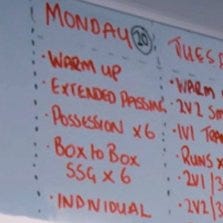 MONDAY 20
· WARM UP
· EXTENDED PASSING
· POSSESSION x6
· BOX to BOX
SSG x 6
· INDIVIDUAL
TUES
· WARM
· 2V2 Sm
· 1V1 TRA
· RUNS x
· 2V1 / 3
· 2V2 /